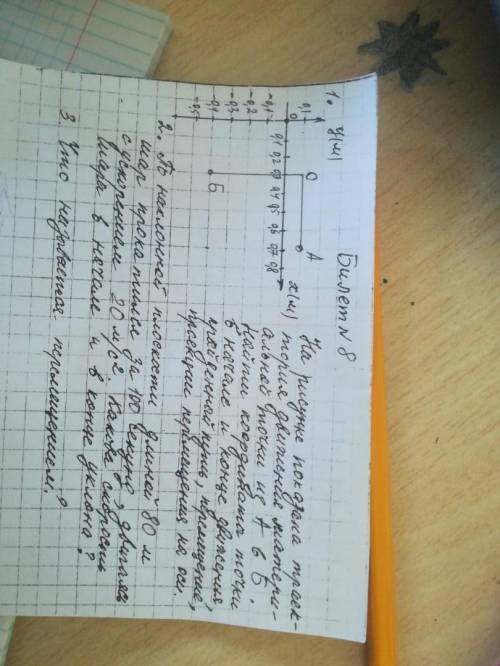 Билет N 8
1. y(м)
На рисунке показана траек-
тория движения матери-
альной точки из А в Б
Найти координаты точки
в начале и конце движения
пройденный путь, перемещение,
проекции перемещения на оси.
0,1
0
-0,1
-0,2
-0,3
-0,4
-0,5
0,1 0,2 0,3 0,4 0,5 0,6 0,7 0,8
x(м)
О
А
Б
2. По наклонной плоскости длиной 80 м
шар прокатили за 100 секунд, двигаясь
с ускорением 20 м/с². Какова скорость
шара в начале и в конце уклона?
3. Что называется перемещением?